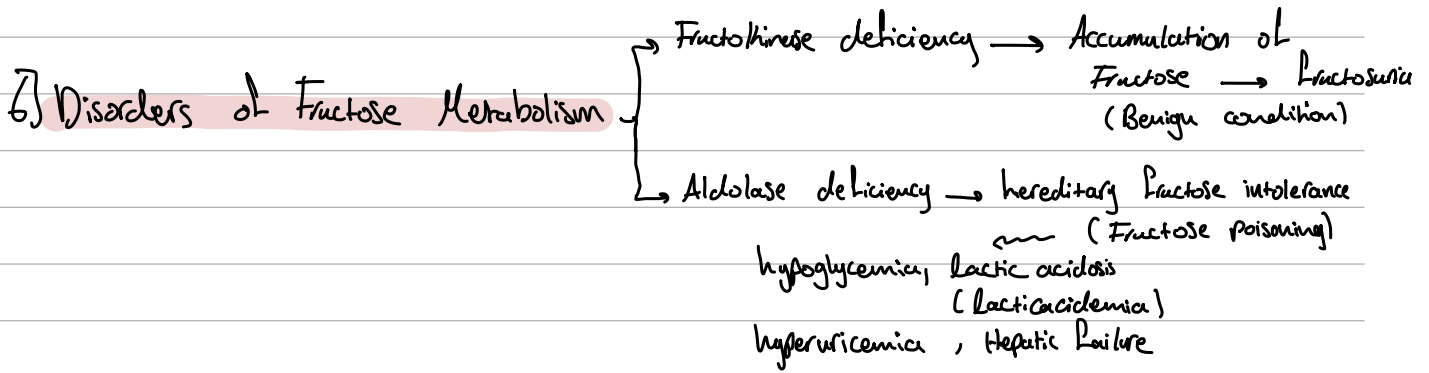 6] Disorders of Fructose Metabolism
Fructokinase deficiency → Accumulation of
Fructose → fructosuria
(Benign condition)
Aldolase deficiency → hereditary fructose intolerance
(Fructose poisoning)
hypoglycemia, lactic acidosis
(lacticacidemia)
hyperuricemia, Hepatic failure